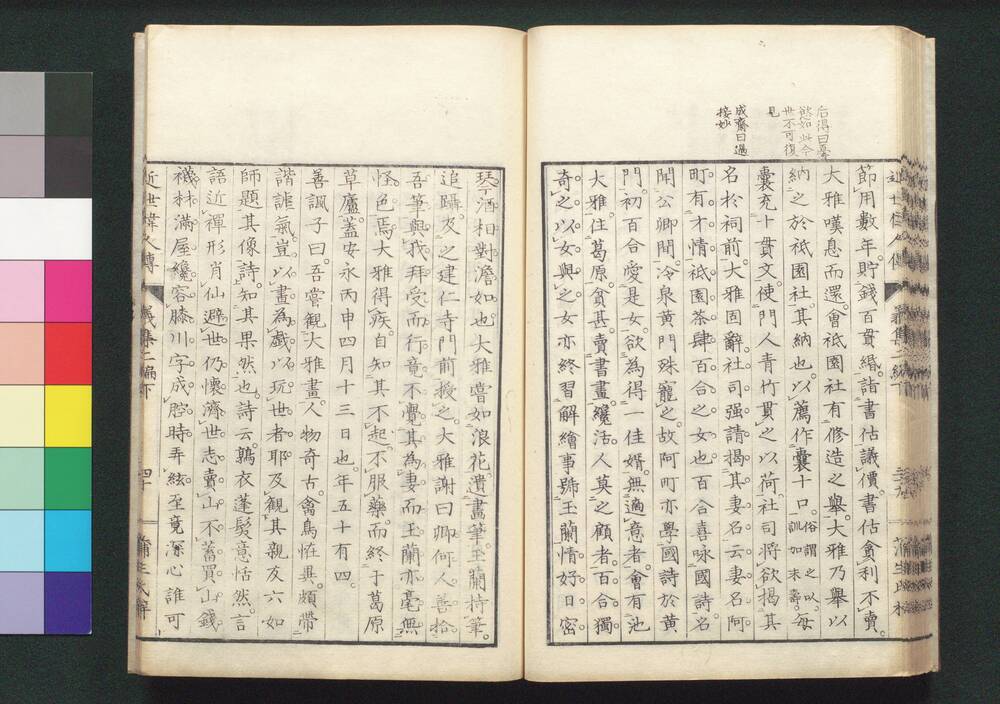 后得曰憂
欲如此今
世不可復
見
成齋曰過
接妙
節用數年貯錢百貫緡詣書估議價書估貪利不賣
大雅嘆息而還會祇園社有修造之舉大雅乃舉以
納之於祇園社其納也以薦作囊十口俗謂之以訓如末壽每
囊充十貫文使門人青竹貫之以荷社司將欲揭其
名於祠前大雅固辭社司强請揭其妻名云妻名阿
町有才情祇園茶肆百合之女也百合喜咏國詩名
聞公卿間冷泉黄門殊寵之故阿町亦學國詩於黄
門初百合愛是女欲為得一佳婿無適意者會有池
大雅住葛原貧甚賣書畫纔活人莫之顧者百合獨
奇之以女與之女亦終習解繪事號玉蘭情好日密
琴酒相對澹如也大雅嘗如浪花遺畫筆玉蘭持筆
追躡及之建仁寺門前授之大雅謝曰卿何人善拾
吾筆與我拜受而行竟不覺其為妻而玉蘭亦毫無
怪色焉大雅得疾自知其不起不服藥而終于葛原
草廬蓋安永丙申四月十三日也年五十有四
善諷子曰吾嘗觀大雅畫人物奇古禽鳥恠異頗帶
諧謔氣豈以畫為戲以玩世者耶及觀其親友六如
師題其像詩知其果然也詩云鶉衣蓬髮意恬然言
語近禪形肖仙避世仍懷濟世志賣山不蓄買山錢
襪材滿屋纔容膝川字成腔時弄絃至竟深心誰可
近世偉人傳 義集二編下 四十 蒲生氏梓